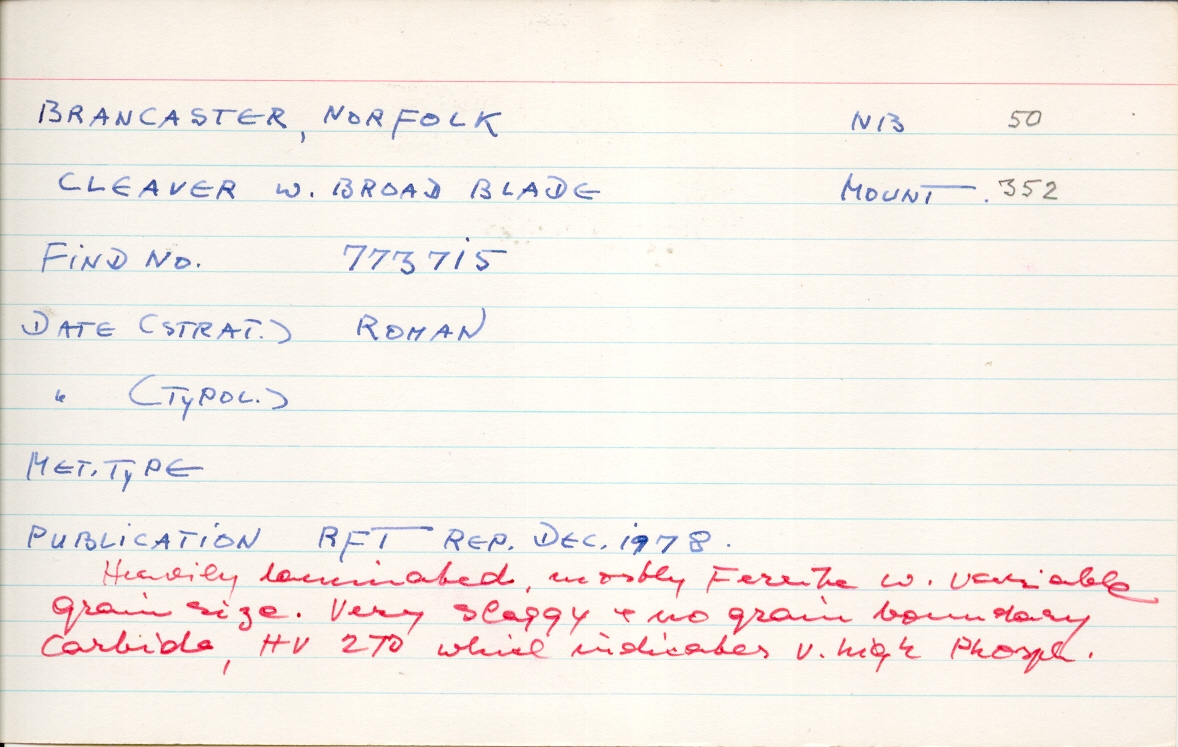 BRANCASTER, NORFOLK NB 50
CLEAVER W. BROAD BLADE MOUNT . 352
FIND No. 773715
DATE (STRAT.) ROMAN
" (TYPOL.)
MET. TYPE
PUBLICATION RFT REP. DEC. 1978.
Heavily laminated, mostly Ferrite w. variable
grain size. Very slaggy + no grain boundary
Carbide, HV 270 which indicates v. high Phosph.